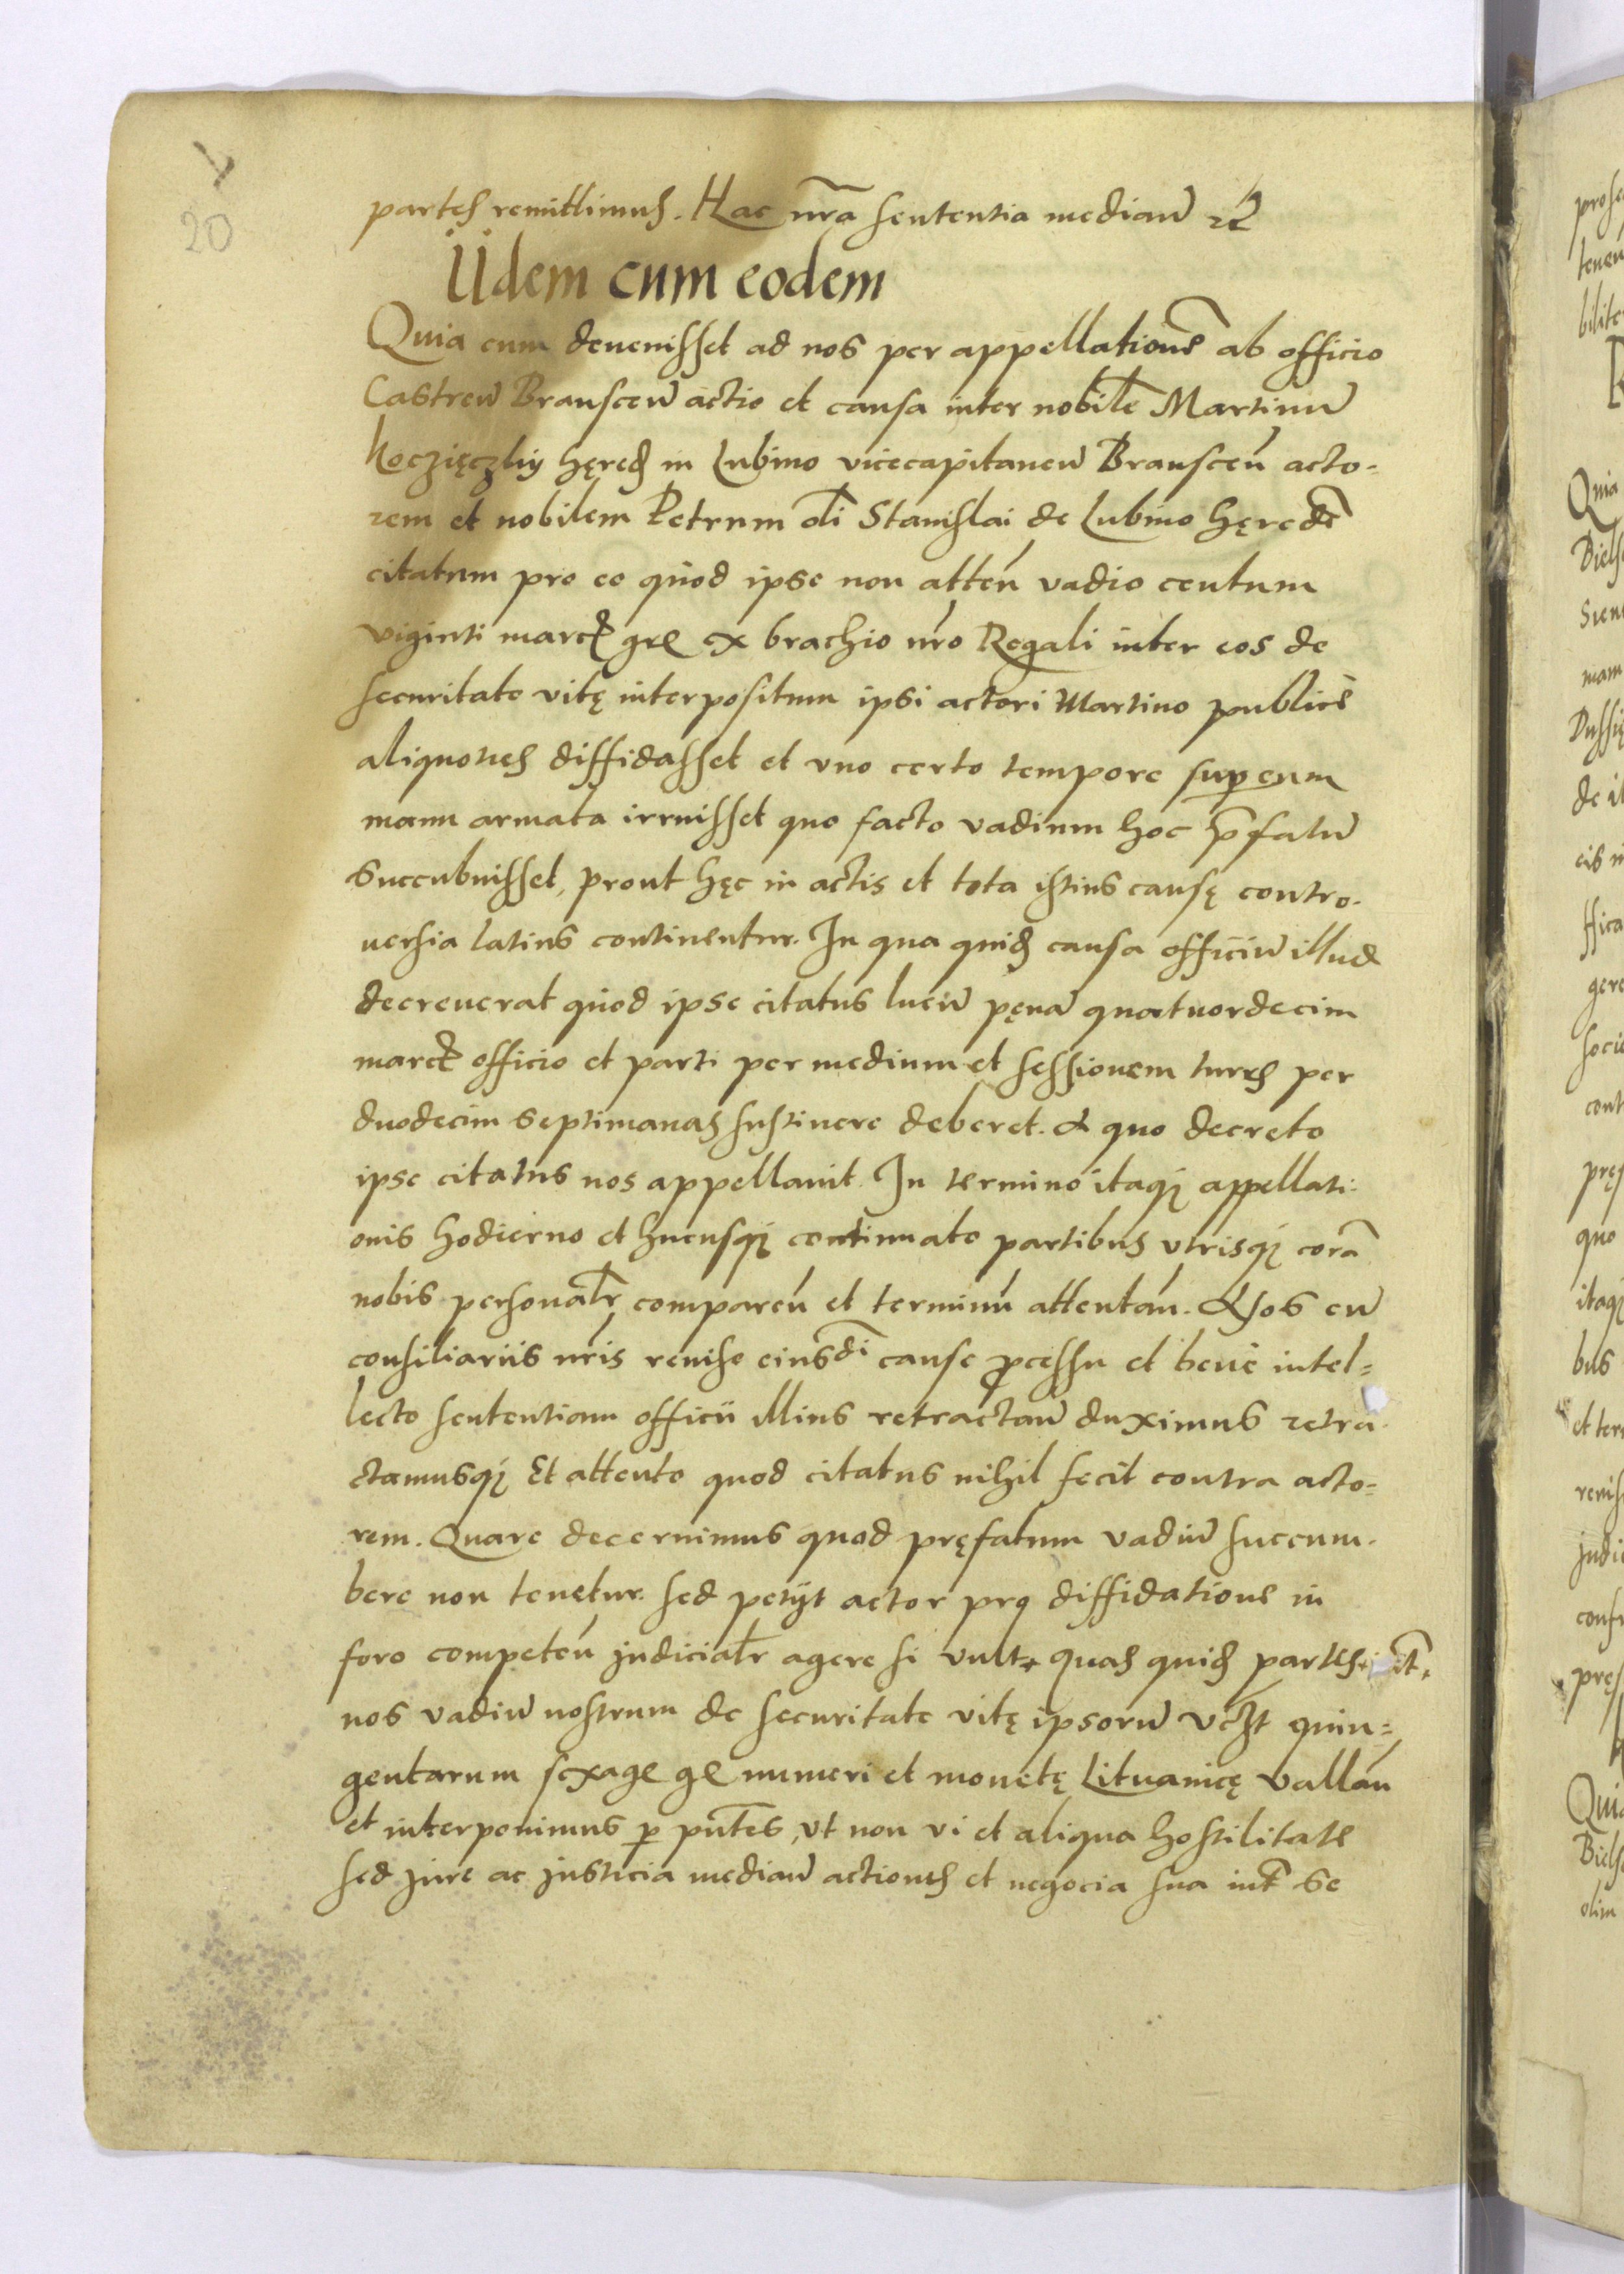 20
partes remittimus. Hac nr̃a sententia median̄ ꝛc̃
Iidem cum eodem
Quia cum deuenisset ad nos per appellationẽ ab officio
Castren̄ Branscen̄ actio et causa inter nobilẽ Martinū
Koczięczky hęred̄ in Lubino vicecapitaneū Branscen̄ acto=
rem et nobilem Petrum oĩi Stanislai de Lubino hęredẽ
citatum pro eo quod ipse non atten̄ vadio centum
viginti marcꝭ grꝭ ex brachio nr̃o Regali inter eos de
securitate vitę interpositum ipsi actori Martino publicè
aliquoties diffidasset et vno certo tempore super eum
manu armata irruisset quo facto vadium hoc p̃fatū
succubuisset, prout hęc in actis et tota istius causę contro-
uersia latius continentur. In qua quid̄ causa officiū illud
decreuerat quod ipse citatus luciū pęnā quatuordecim
marcꝭ officio et parti per medium et sessionem turris per
duodecim septimanas sustinere deberet. A quo decreto
ipse citatus nos appellauit. In termino itaqꝫ appellati-
onis hodierno et hucusqꝫ continuato partibus vtrisqꝫ corã
nobis personal̃r comparen̄ et terminū attentan̄. Nos cū
consiliariis nr̃is reuiso eiusdĩ cause ꝓcessu et bene intel=
lecto sententiam officii illius retractan̄ duximus retra-
ctamusqꝫ Et attento quod citatus nihil fecit contra acto=
rem. Quare decernimus quod pręfatum vadiū succum-
bere non tenetur. sed petijt actor pro diffidatione in
foro competen̄ judicial̃r agere si vult. quas quid̄ partes
nos vadiū nostrum de securitate vitę ipsorū vcꝫt quin=
gentarum sexagꝭ gꝭ numeri et monetę Lituanicę vallan̄
et interponimus ꝑ pñtes, vt non vi et aliqua hostilitate
sed jure ac justicia median̄ actiones et negocia sua int̃ se